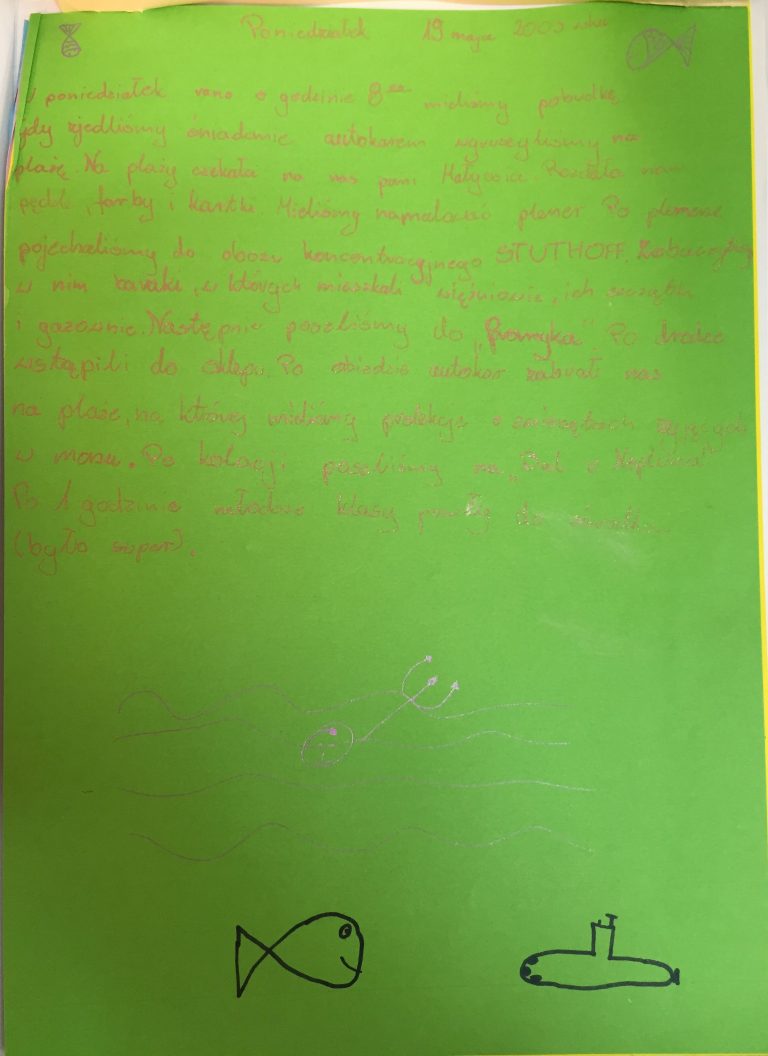 Poniedziałek 19 maja 2003 roku
W poniedziałek rano o godzinie 8⁰⁰ mieliśmy pobudkę
gdy zjedliśmy śniadanie autokarem wyruszyliśmy na
plażę. Na plaży czekała na nas pani Małgosia. Rozdała nam
pędzle, farby i kartki. Mieliśmy namalować plener. Po plenerze
pojechaliśmy do obozu koncentracyjnego STUTHOFF. Zobaczyliśmy
w nim baraki, w których mieszkali więźniowie, ich
i gazownie. Następnie poszliśmy do „Promyka" Po drodze
wstąpili do sklepu. Po obiedzie autokar zabrał nas
na plażę, na której mieliśmy prelekcję o zwierzętach żyjących
w morzu. Po kolacji poszliśmy na „Bal u Neptuna"
Po 1 godzinie młodsze klasy poszły do
(było super).